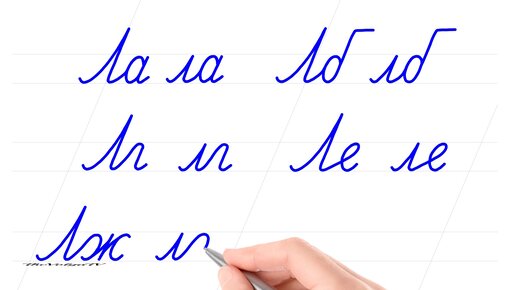 Ла ла Лб лб
Лг лг Ле ле
Лж л